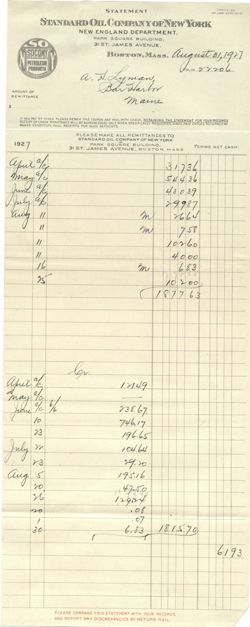 STATEMENT
STANDARD OIL COMPANY OF NEW YORK
NEW ENGLAND DEPARTMENT.
PARK SQUARE BUILDING,
31 ST. JAMES AVENUE,
BOSTON, MASS. August 31, 1927
22206
SOCONY
PETROLEUM
PRODUCTS
A. H. Lyman,
Bar Harbor
Maine
AMOUNT OF
REMITTANCE
$
PLEASE MAKE ALL REMITTANCES TO
STANDARD OIL COMPANY OF NEW YORK
PARK SQUARE BUILDING,
31 ST. JAMES AVENUE, BOSTON, MASS.
1927 TERMS NET CASH
April a/c 317 36
May a/c 544 36
June a/c 430 39
July a/c 299 87
Aug 11 m 26 64
11 m 7 58
11 102 60
11 40 00
16 m 6 83
25 102 00
1877 63
Cr
April a/c 121 49
May a/c
June a/c 6/6 238 67
10 746 17
23 196.65
July 22 104.64
23 29.20
Aug 5 195 16
20 47.50
26 129.24
20 .08
1 .07
30 6.83 1815.70
61 93
PLEASE COMPARE THIS STATEMENT WITH YOUR RECORDS
AND REPORT ANY DISCREPANCIES BY RETURN MAIL.